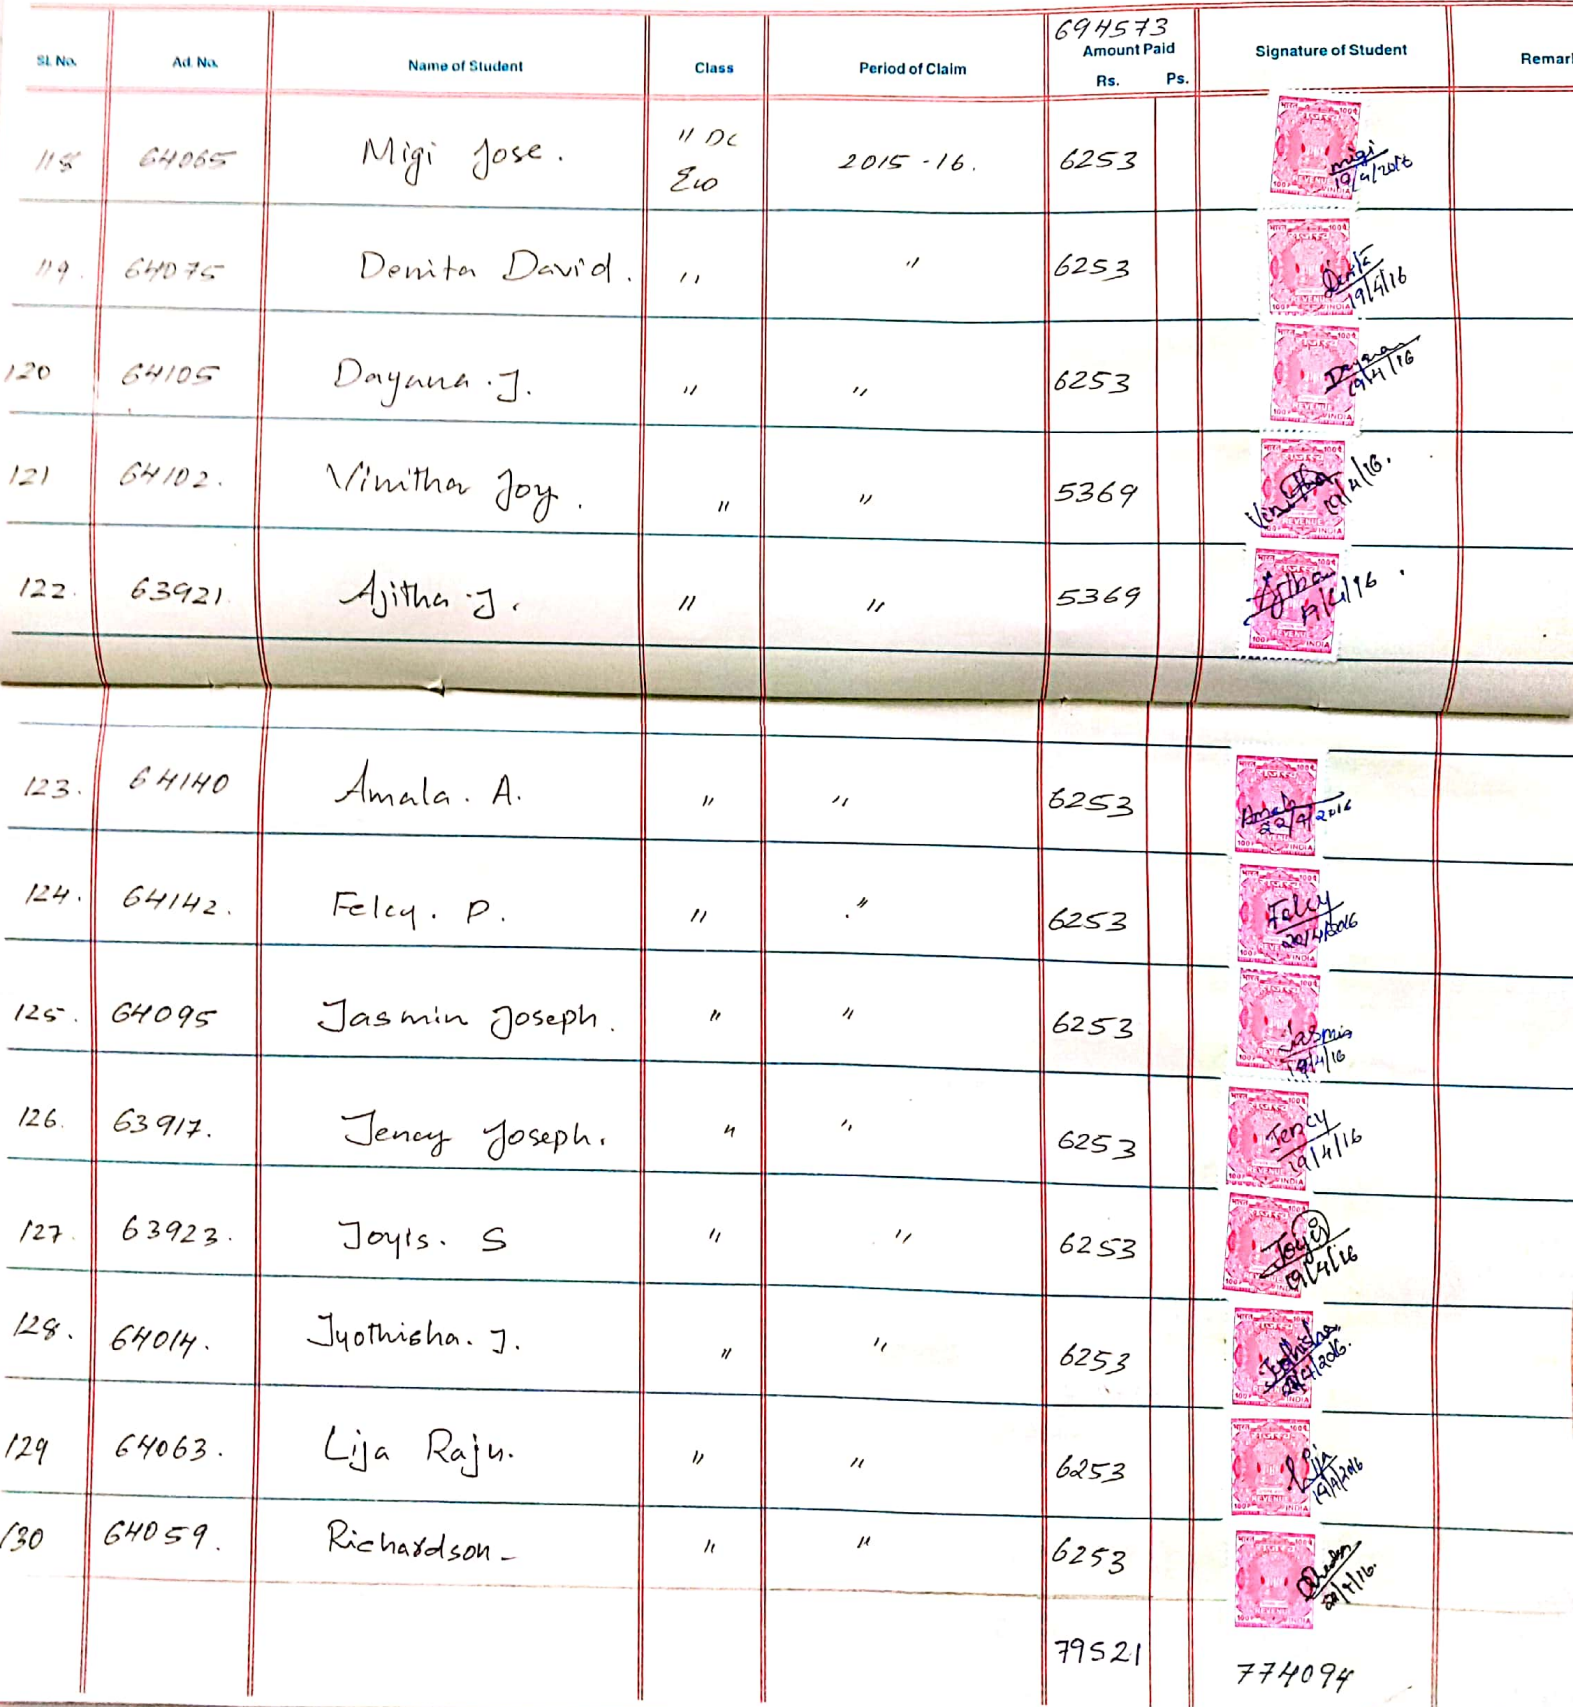 694573
Sl. No. Ad. No. Name of Student Class Period of Claim Amount Paid Rs. Ps. Signature of Student Remar
118 64065 Migi Jose. II DC Eco 2015-16. 6253 migi 19/4/2016
119. 64075 Denita David. " " 6253 Denita 19/4/16
120 64105 Dayana. J. " " 6253 Dayana 19/4/16
121 64102. Vinitha Joy. " " 5369 Vinitha 19/4/16.
122. 63921 Ajitha J. " " 5369 Ajitha 19/4/16.
123. 64140 Amala. A. " " 6253 Amala 22/4/2016
124. 64142. Felcy. P. " " 6253 Felcy 20/4/2016
125. 64095 Jasmin Joseph. " " 6253 Jasmin 19/4/16
126. 63917. Jency Joseph. " " 6253 Jency 19/4/16
127. 63923. Joyis. S " " 6253 Joyis 19/4/16
128. 64014. Jyothisha. J. " " 6253 Jyothisha
129 64063. Lija Raju. " " 6253 Lija 19/4/2016
130 64059. Richardson- " " 6253
79521 774094